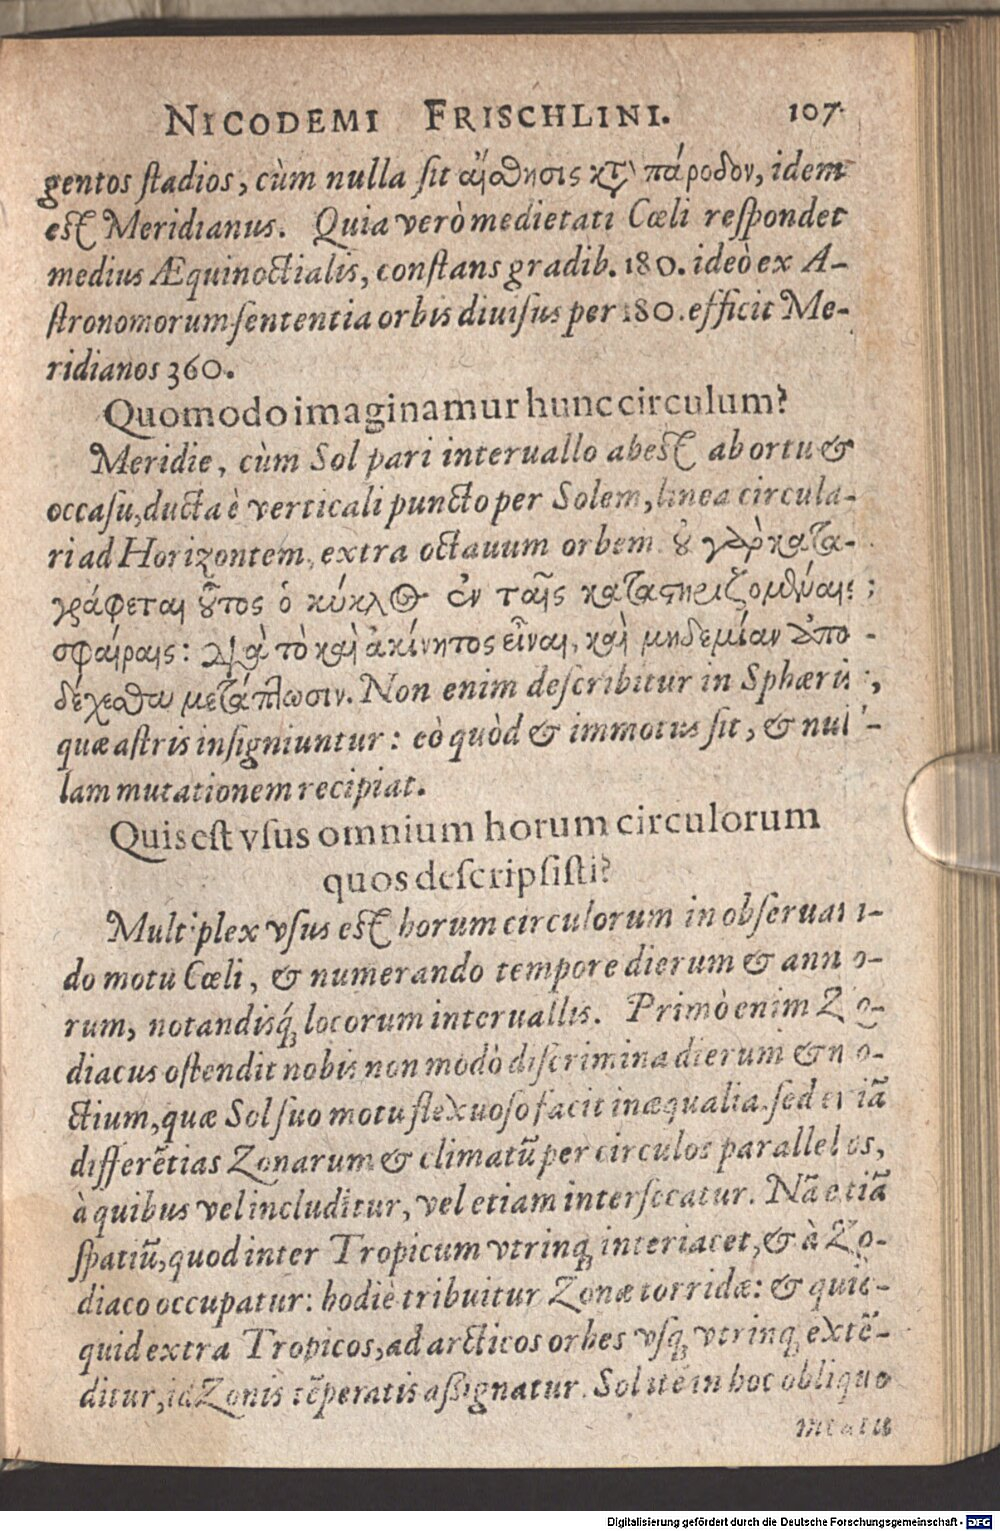 NICODEMI FRISCHLINI. 107.
gentos ſtadios, cùm nulla ſit αἴσθησις κτ πάροδον, idem
eſt Meridianus. Quia verò medietati Cœli reſpondet
medius Æquinoctialis, conſtans gradib. 180. ideò ex A-
ſtronomorum ſententia orbis diuiſus per 180. efficit Me-
ridianos 360.
Quomodo imaginamur hunc circulum?
Meridie, cùm Sol pari interuallo abeſt ab ortu &
occaſu, ducta è verticali puncto per Solem, linea circula-
ri ad Horizontem, extra octauum orbem. ȣ γὰρ κατα-
γράφεται ȣ̃τος ὁ κύκλος ἐν ταῖς καταστηριζομέναις
σφαίραις: διὰ τὸ καὶ ἀκίνητος εἶναι, καὶ μηδεμίαν ἀπο-
δέχεσθαι μετάπλωσιν. Non enim deſcribitur in Sphæris,
quæ aſtris inſigniuntur: eò quòd & immotus ſit, & nul-
lam mutationem recipiat.
Quis eſt vſus omnium horum circulorum
quos deſcripſiſti?
Multiplex vſus eſt horum circulorum in obſeruan-
do motu Cœli, & numerando tempore dierum & anno-
rum, notandisq́; locorum interuallis. Primò enim Zo-
diacus oſtendit nobis non modò diſcrimina dierum & no-
ctium, quæ Sol ſuo motu flexuoſo facit inæqualia, ſed etiã
differẽtias Zonarum & climatũ per circulos parallelos,
à quibus vel includitur, vel etiam interſecatur. Nã etiã
ſpatiũ, quod inter Tropicum vtrinq; interiacet, & à Zo-
diaco occupatur: hodiè tribuitur Zonæ torridæ: & quic-
quid extra Tropicos, ad arcticos orbes vſq; vtrinq; extẽ-
ditur, id Zonis tẽperatis aßignatur. Sol itẽ in hoc obliquo
meatu
Digitalisierung gefördert durch die Deutsche Forschungsgemeinschaft - DFG